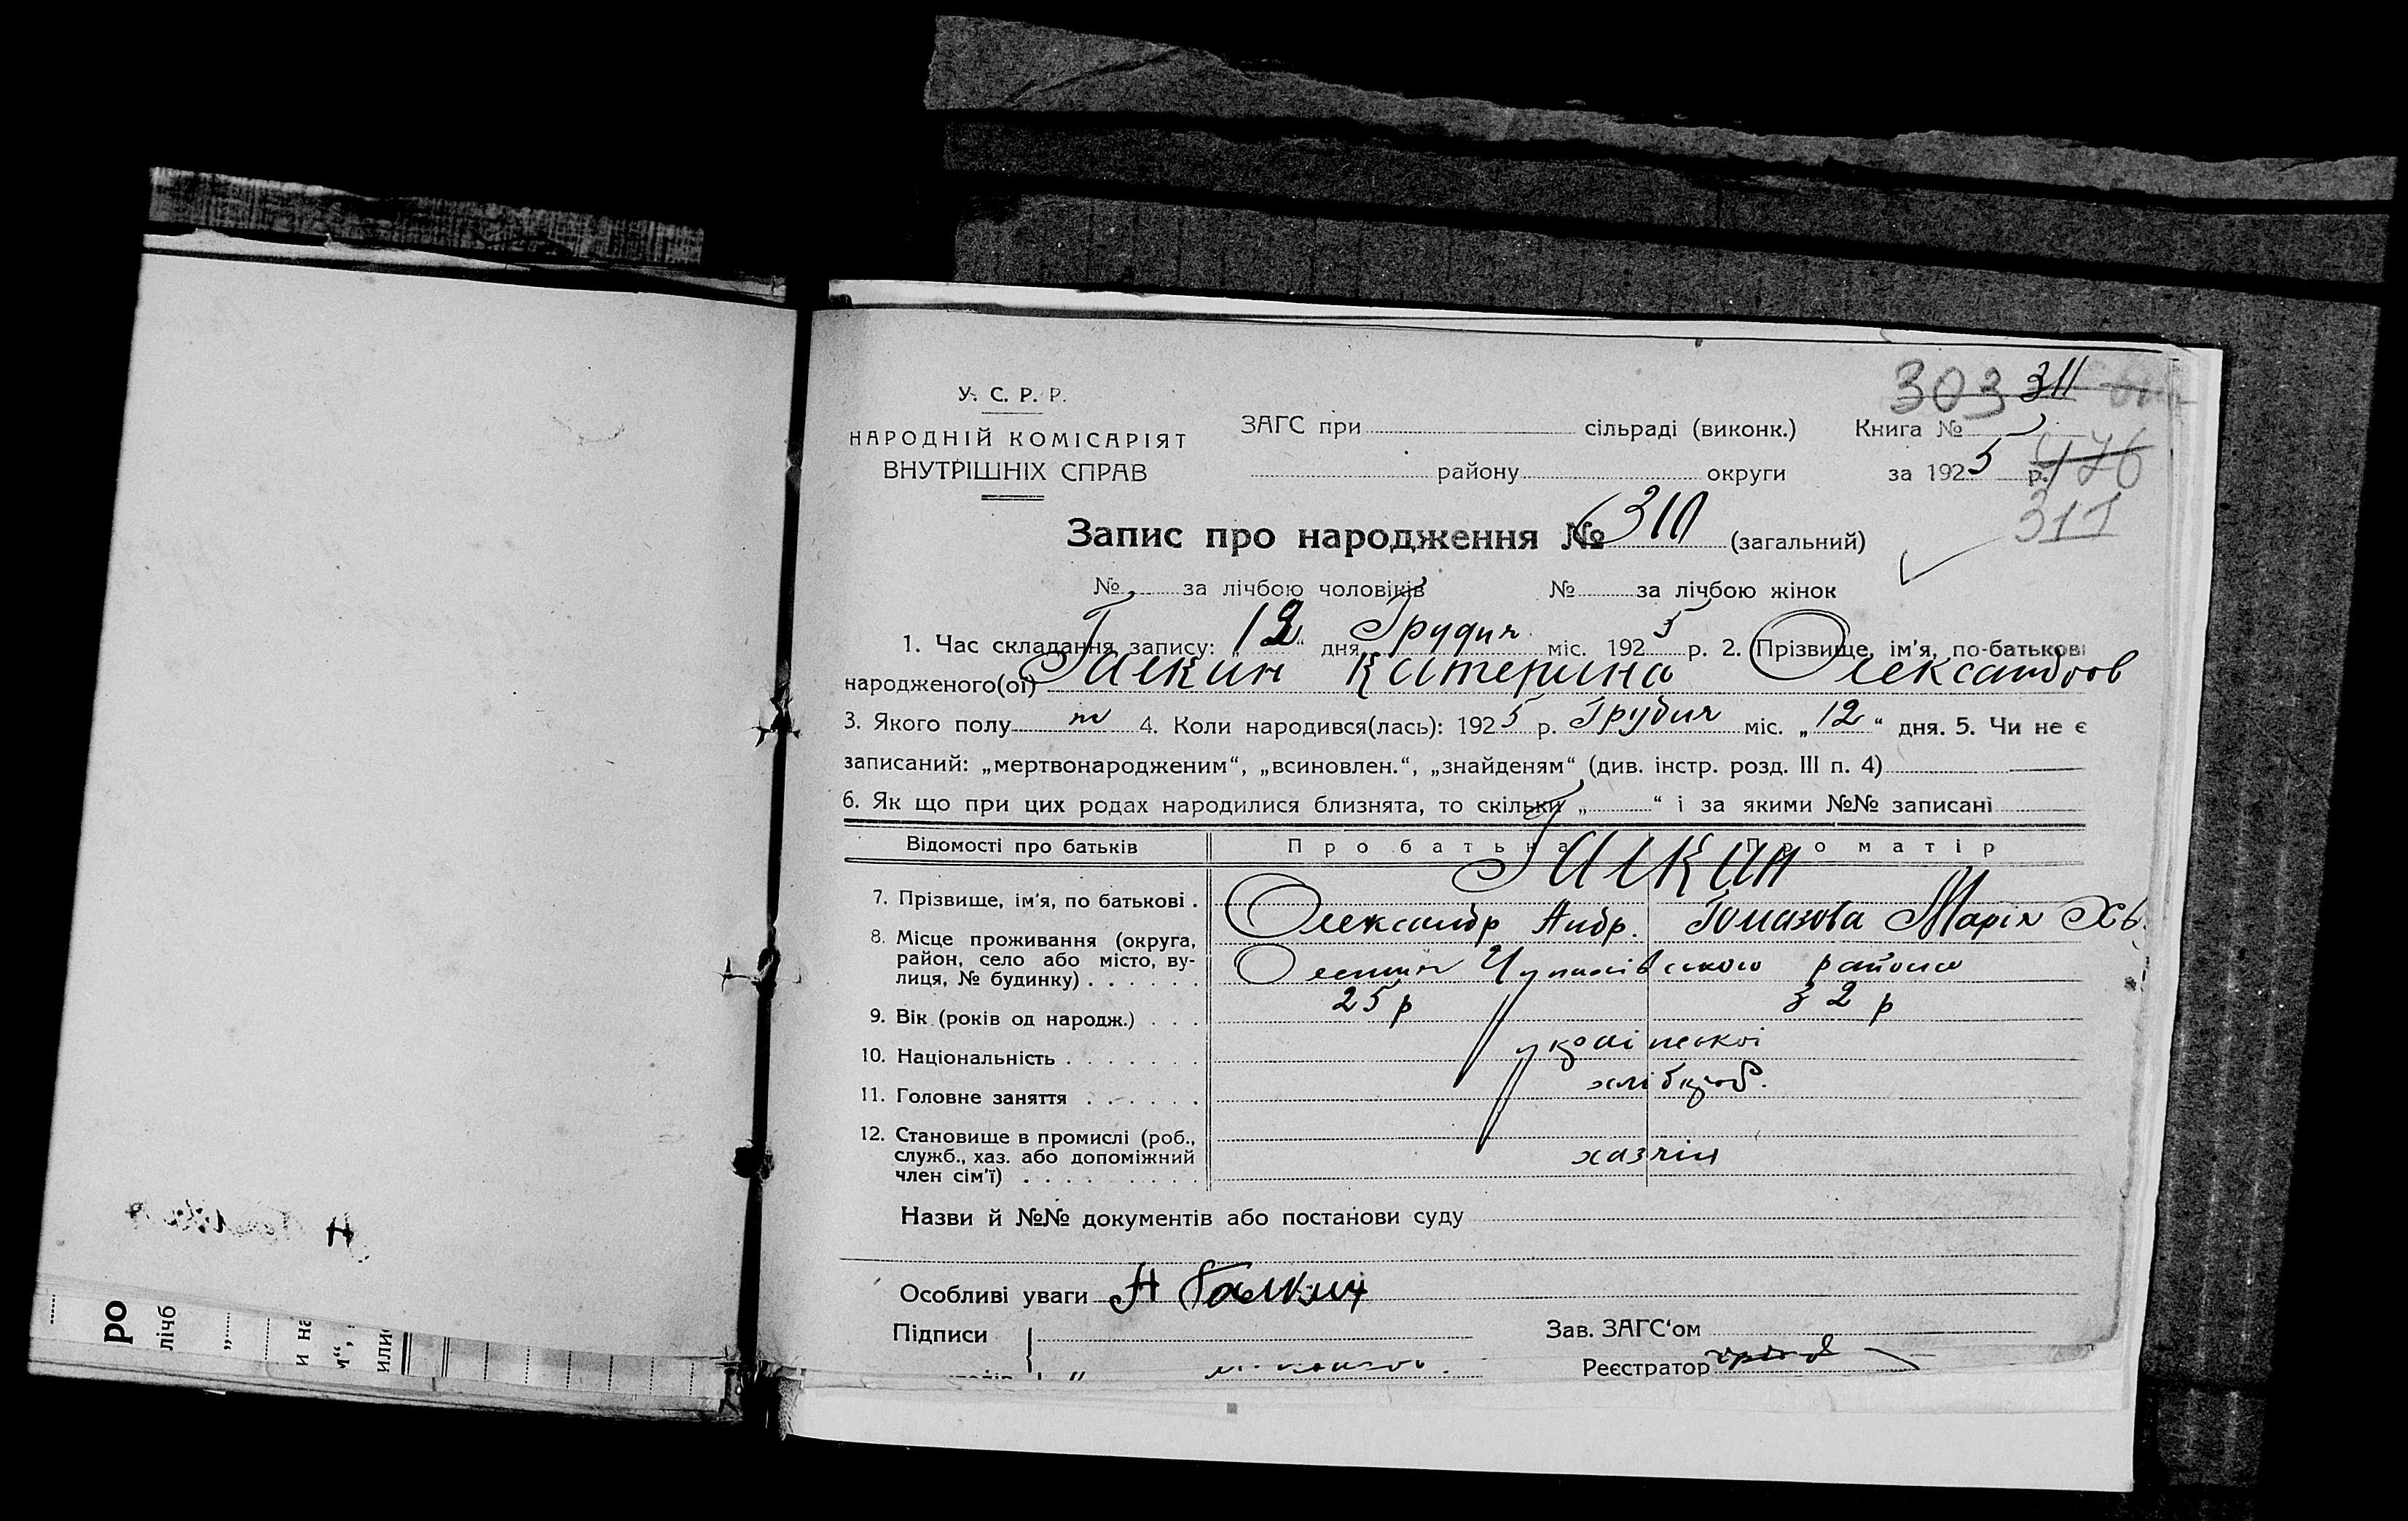 303 311
У. С. Р. Р.
НАРОДНІЙ КОМІСАРІЯТ
ВНУТРІШНІХ СПРАВ
ЗАГС при сільраді (виконк.) Книга №
району округи за 1925 р.
476
311
Запис про народження № 310 (загальний)
№ за лічбою чоловіків № за лічбою жінок
1. Час складання запису: „12“ дня Грудня міс. 1925 р. 2. Прізвище, ім'я, по-батькові
народженого(ої) Галкин Катерина Олександров
3. Якого полу 4. Коли народився(лась): 1925 р. Грудня міс. „12“ дня. 5. Чи не є
записаний: „мертвонародженим“, „всиновлен.“, „знайденям“ (див. інстр. розд. III п. 4)
6. Як що при цих родах народилися близнята, то скільки „ “ і за якими №№ записані
Відомості про батьків Про батька Про матір
Галкин
7. Прізвище, ім'я, по батькові . Олександр Андр. Марія
8. Місце проживання (округа, район, село або місто, вулиця, № будинку) . . . . . . району
9. Вік (років од народж.) . . . 25 р 32 р
10. Національність . . . . . . . української
11. Головне заняття . . . . . . хлібороб.
12. Становище в промислі (роб., служб., хаз. або допоміжний член сім'ї) . . . . . . . . . хазяін
Назви й №№ документів або постанови суду
Особливі уваги А Галкин
Підписи
Зав. ЗАГС'ом
Реєстратор
ро
лічб